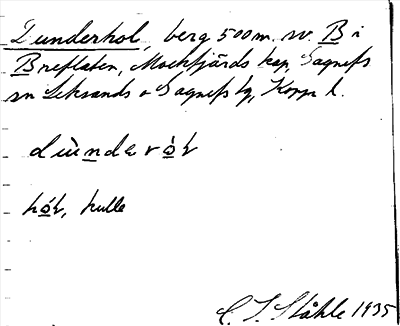 Dunderhol, berg 500 m. sv. B i
Breflaten, Mockfjärds kap, Gagnefs
sn Leksands o Gagnefs tg, Kopp l.
dùnderóɫ
hóɫ, kulle
C. I. Ståhle 1935